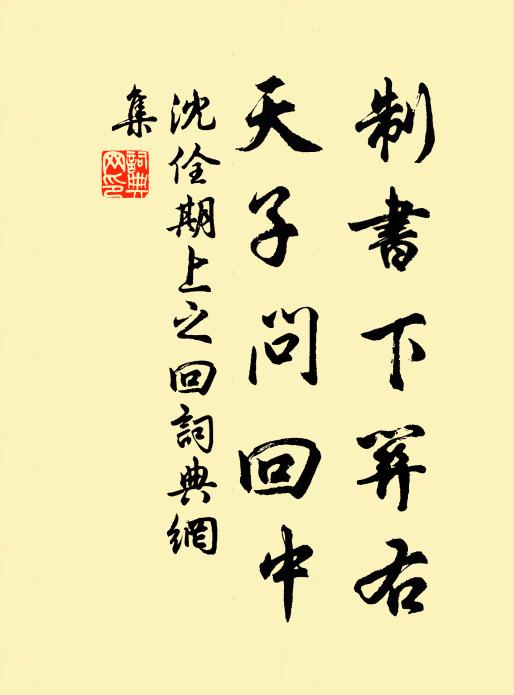 制書下關右
天子問回中
沈佺期上之回詞典網
集
詞典
网印